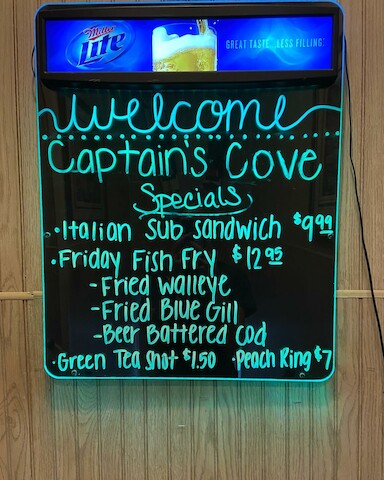 Miller Lite GREAT TASTE. LESS FILLING.
welcome
Captain's Cove
Specials
·Italian Sub Sandwich $9.99
·Friday Fish Fry $12.95
-Fried Walleye
-Fried Blue Gill
-Beer Battered Cod
·Green Tea Shot $1.50 ·Peach Ring $7